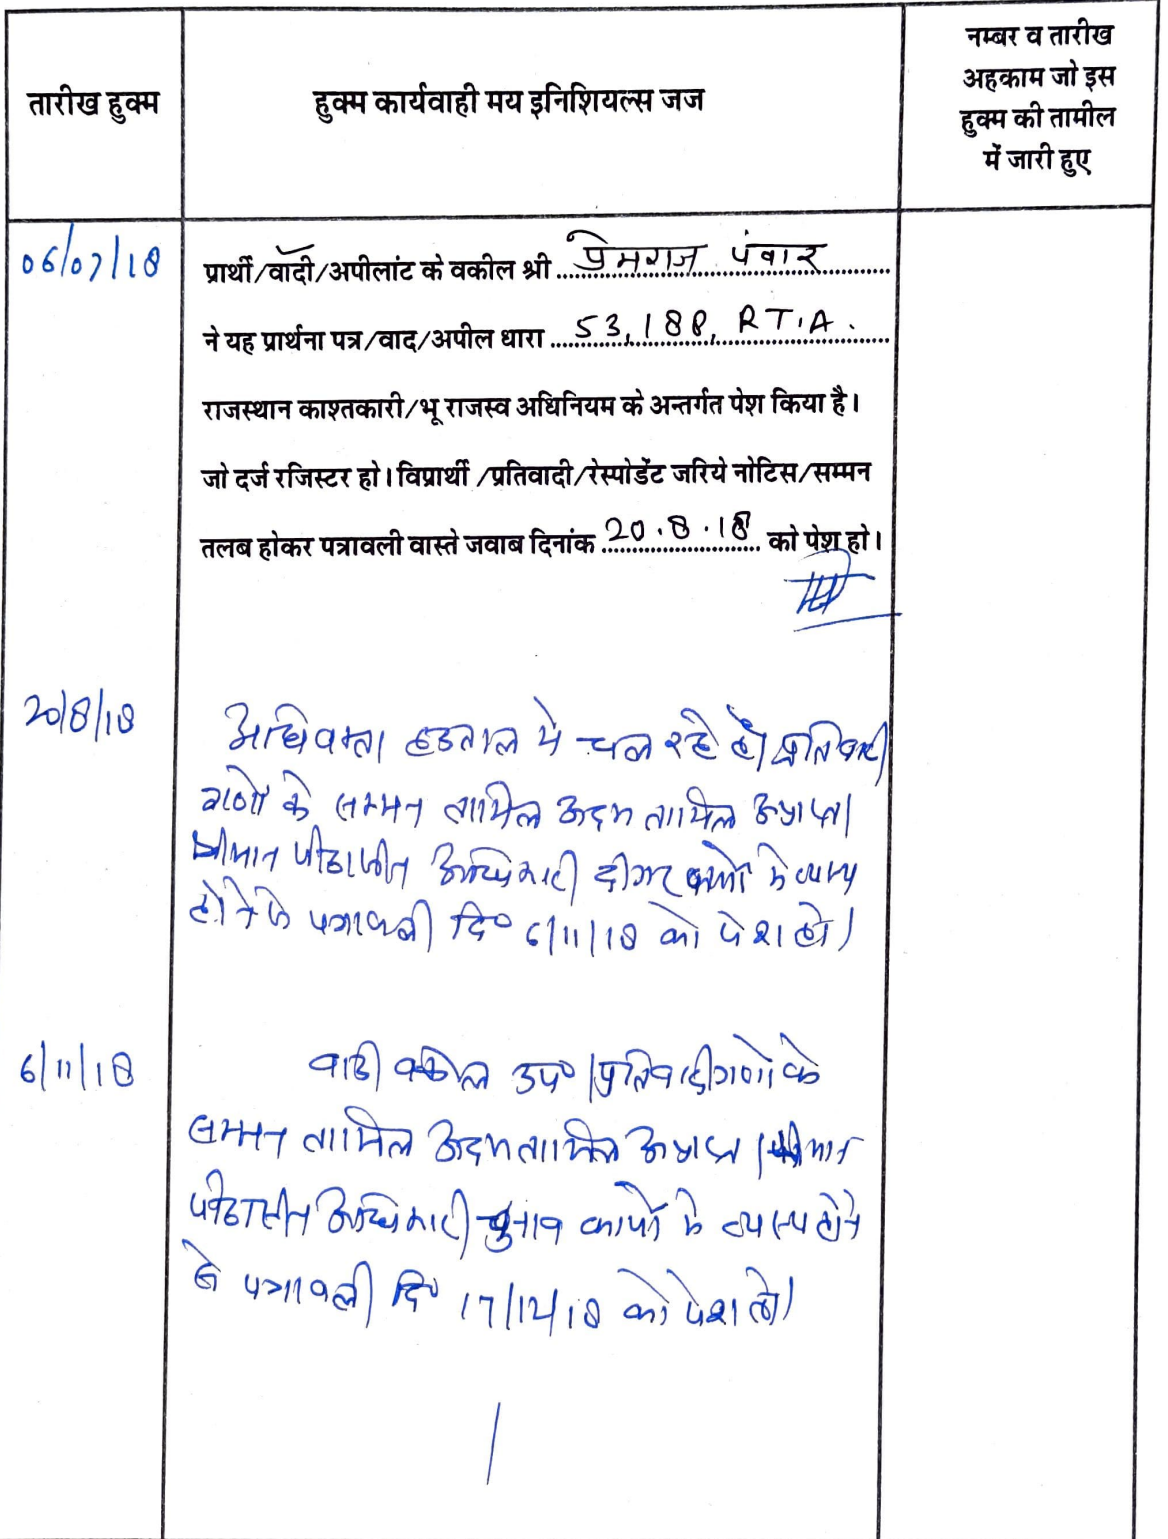 तारीख हुक्म
हुक्म कार्यवाही मय इनिशियल्स जज
नम्बर व तारीख
अहकाम जो इस
हुक्म की तामील
में जारी हुए
06/07/18
प्रार्थी/वादी/अपीलांट के वकील श्री प्रेमराज पंवार
ने यह प्रार्थना पत्र/वाद/अपील धारा 53,188, R T.A.
राजस्थान काश्तकारी/भू राजस्व अधिनियम के अन्तर्गत पेश किया है।
जो दर्ज रजिस्टर हो। विप्रार्थी /प्रतिवादी/रेस्पोडेंट जरिये नोटिस/सम्मन
तलब होकर पत्रावली वास्ते जवाब दिनांक 20.8.18 को पेश हो।
20/8/18
अधिवक्ता हडताल मे चल रहे है। प्रतिवादी
गणो के सम्मन तामिल अदम तामिल अप्राप्त।
श्रीमान पीठासीन अधिकारी दीगर कार्यो मे व्यस्त
होने से पत्रावली दि० 6/11/18 को पेश हो।
6/11/18
वादी वकील उप० प्रतिवादीगणो के
सम्मन तामिल अदम तामिल अप्राप्त। श्रीमान
पीठासीन अधिकारी चुनाव कार्यो मे व्यस्त होने
से पत्रावली दि० 17/12/18 को पेश हो।